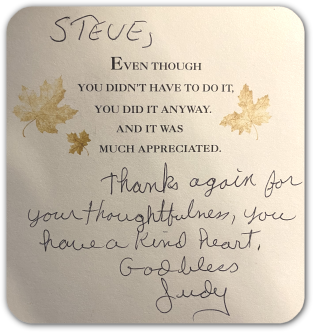 STEVE,
EVEN THOUGH
YOU DIDN'T HAVE TO DO IT,
YOU DID IT ANYWAY.
AND IT WAS
MUCH APPRECIATED.
Thanks again for
your thoughtfulness, you
have a kind heart.
God bless
Judy